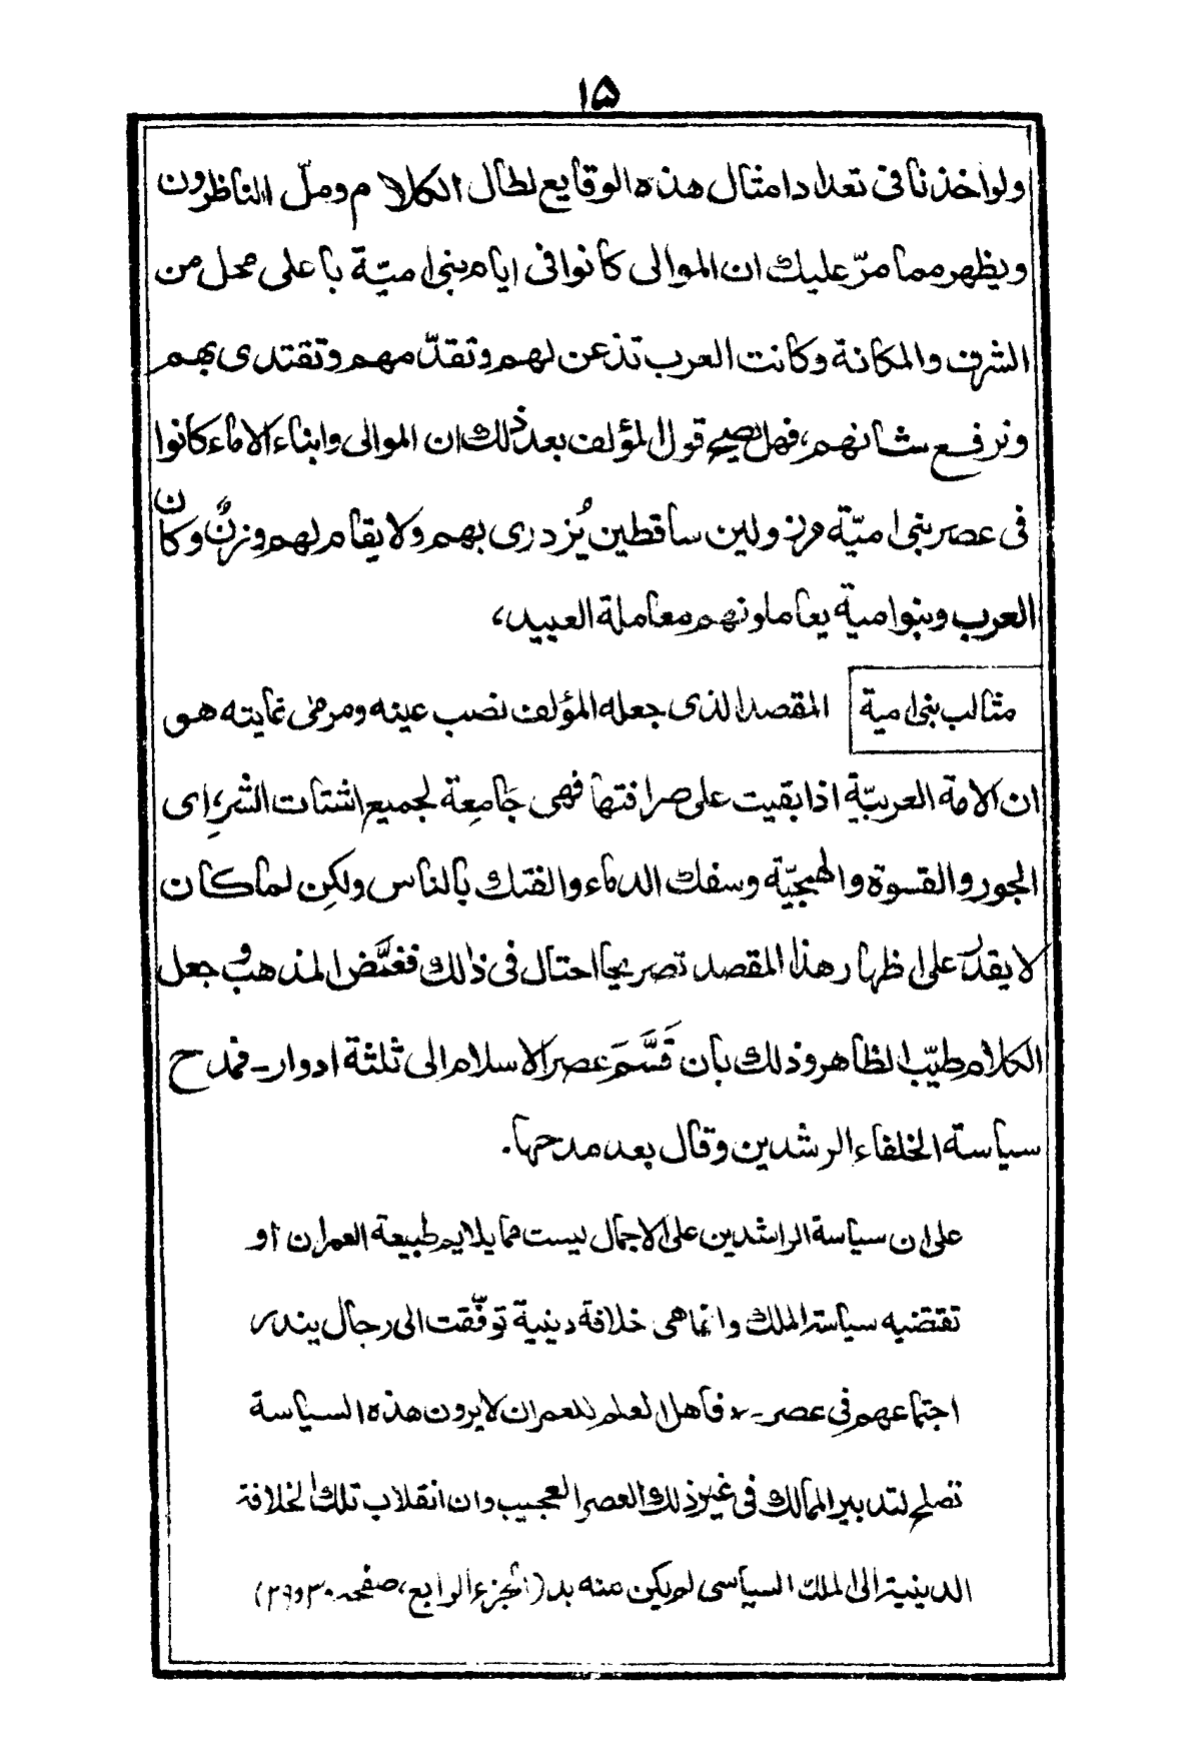 ۱۵
ولو اخذنا فى تعداد امثال هذه الوقايع لطال الكلام وملّ الناظرون
ويظهر مما مرّ عليك ان الموالى كانوا فى ايام بنى اميّة باعلى محل من
الشرف والمكانة وكانت العرب تذعن لهم وتقدّمهم وتقتدى بهم
وترفع شانهم، فهل يصح قول المؤلف بعد ذلك ان الموالى وابناء الاماء كانوا
فى عصر بنى اميّة مرذولين ساقطين يُزدرى بهم ولا يقام لهم وزنٌ وكان
العرب وبنوامية يعاملونهم معاملة العبيد،
مثالب بنى امية المقصد الذى جعله المؤلف نصب عينه ومرمى غايته هو
ان الامة العربيّة اذا بقيت على صرافتها فهى جَامِعة لجميع اشتات الشرِ، اى
الجور والقسوة والهمجيّة وسفك الدماء والفتك بالناس ولكِن لما كان
لا يقدر على اظهار هذا المقصد تصريحا احتال فى ذلك فغمَّض المذهب وجعل
الكلام طيّب الظاهر وذلك بأن قَسَّمَ عصر الاسلام الى ثلثة ادوار ـ فمدح
سياسة الخلفاء الرشدين وقال بعد مدحها.
على ان سياسة الراشدين على الاجمال ليست مما يلايم طبيعة العمران أو
تقتضيه سياسة الملك وانما هى خلافة دينية توفّقت الى رجال يندر
اجتماعهم فى عصر ـ فاهل العلم للعمران لا يرون هذه السياسة
تصلح لتدبير الممالك فى غير ذلك العصر العجيب وان انقلاب تلك الخلافة
الدينية الى الملك السياسى لم يكن منه بد (الجزء الرابع، صفحه ۳۰ و۲۹)